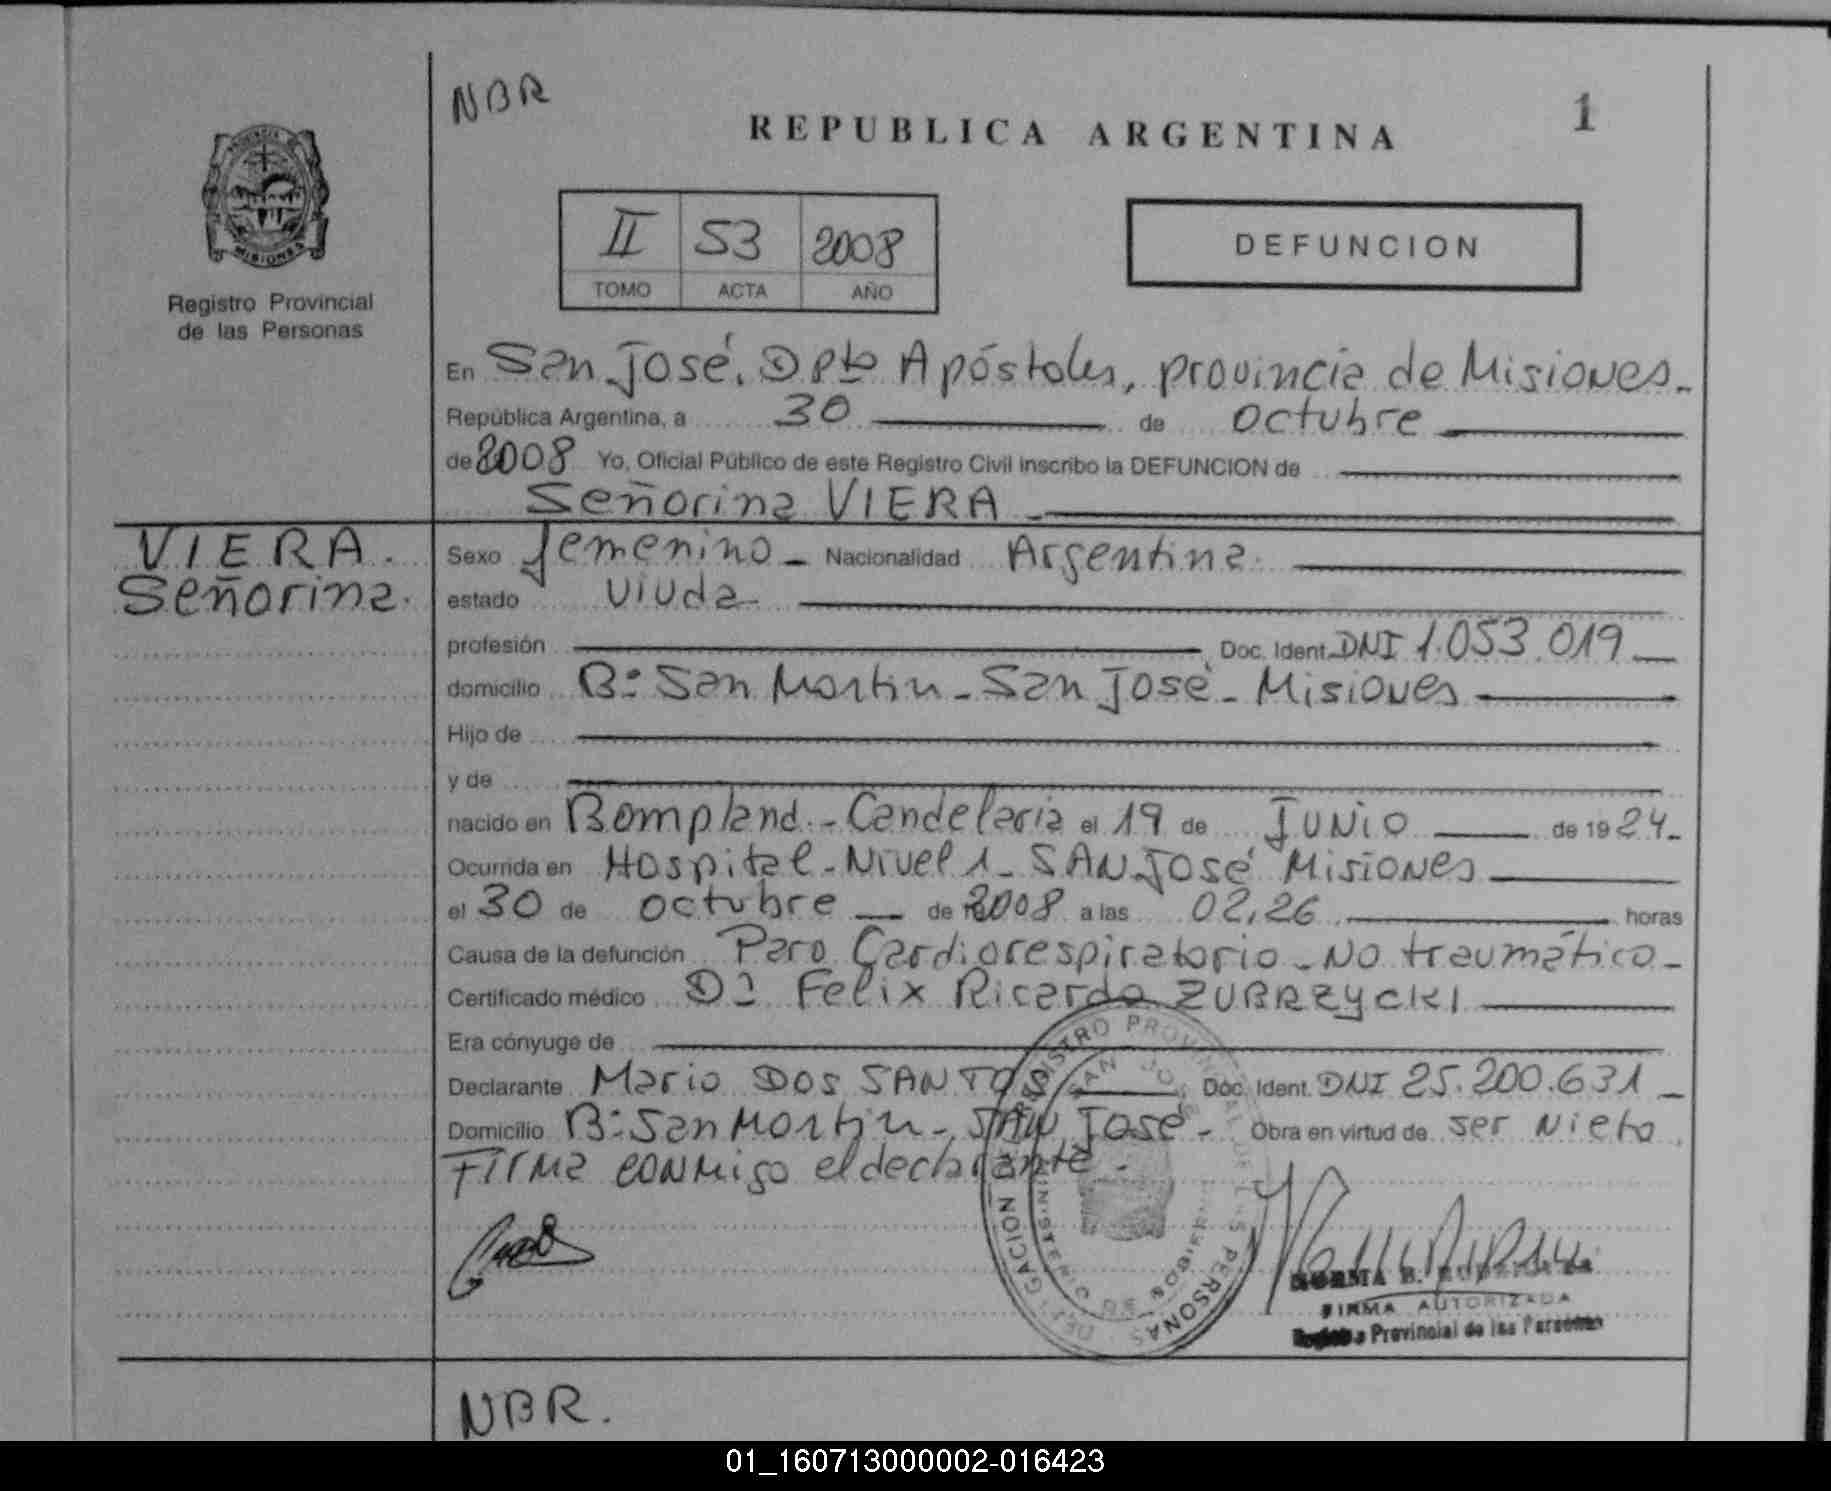 NBR
REPUBLICA ARGENTINA
1
PROVINCIA
MISIONES
Registro Provincial
de las Personas
II 53 2008
TOMO ACTA AÑO
DEFUNCION
En San José. Dpto Apóstoles, provincia de Misiones.
República Argentina, a 30 de octubre
de 2008 Yo, Oficial Público de este Registro Civil inscribo la DEFUNCION de
Señorina VIERA
VIERA.
Señorina.
Sexo femenino Nacionalidad Argentina.
estado Viuda
profesión Doc. Ident. DNI 1.053.019
domicilio Bº San Martin - San José - Misiones
Hijo de
y de
nacido en Bompland - Candelaria el 19 de JUNIO de 1924
Ocurrida en Hospital - Nivel 1 - SAN José Misiones
el 30 de octubre de 2008 a las 02,26 horas
Causa de la defunción Paro Cardiorespiratorio - No traumático
Certificado médico Dr Felix Ricardo ZUBRZYCKI
Era cónyuge de
Declarante Mario DOS SANTOS Doc. Ident. DNI 25.200.631
Domicilio Bº San Martin - SAN José - Obra en virtud de ser Nieto
Firma conmigo el declarante.
REGISTRO PROVINCIAL DE LAS PERSONAS
DELEGACION
SAN JOSE
MINISTERIO DE GOBIERNO
NORMA B.
FIRMA AUTORIZADA
Registro Provincial de las Personas
NBR.
01_160713000002-016423